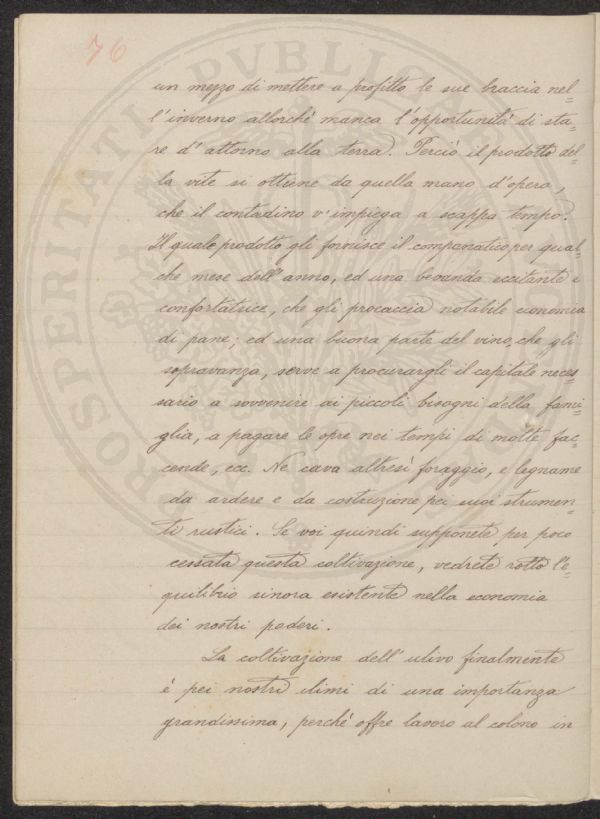 76
un mezzo di mettere a profitto le sue braccia nel=
l'inverno allorchè manca l'opportunità di sta=
re d'attorno alla terra. Perciò il prodotto del=
la vite si ottiene da quella mano d'opera,
che il contadino v'impiega a scappa tempo.
Il quale prodotto gli fornisce il companatico per qual=
che mese dell'anno, ed una bevanda eccitante e
confortatrice, che gli procaccia notabile economia
di pane; ed una buona parte del vino, che gli
sopravanza, serve a procurargli il capitale neces=
sario a sovvenire ai piccoli bisogni della fami=
glia, a pagare le opre nei tempi di molte fac=
cende, ecc. Ne cava altresì foraggio, e legname
da ardere e da costruzione pei suoi strumen=
ti rustici. Se voi quindi supponete per poco
cessata questa coltivazione, vedrete rotto l'e=
quilibrio sinora esistente nella economia
dei nostri poderi.
La coltivazione dell'ulivo finalmente
è pei nostri climi di una importanza
grandissima, perchè offre lavoro al colono in
PROSPERITATI PVBLICAE